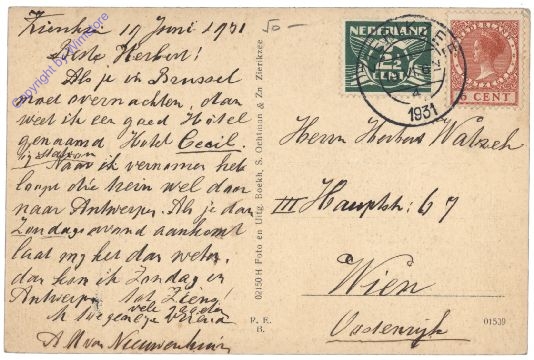 19 Juni 1931
Beste Herbert!
Als je in Brussel
moet overnachten, dan
weet ik een goed Hotel
genaamd Hotel Cecil.
Naar ik vernomen heb
loopt die trein wel door
naar Antwerpen. Als je dan
Zondagavond aankomt
laat mij het dan weten,
dan kom ik Zondag in
Antwerpen. Tot Ziens!
vele groeten
A M van Nieuwenhuis
Copyright by WinStore
02150 H Foto en Uitg. Boekh. S. Ochtman & Zn Zierikzee
NEDERLAND
2½
CENT
1931
NEDERLAND
5 CENT
Herrn Herbert Watzek
III Hauptstr: 67
Wien
Oostenrijk
F. E.
B.
01539